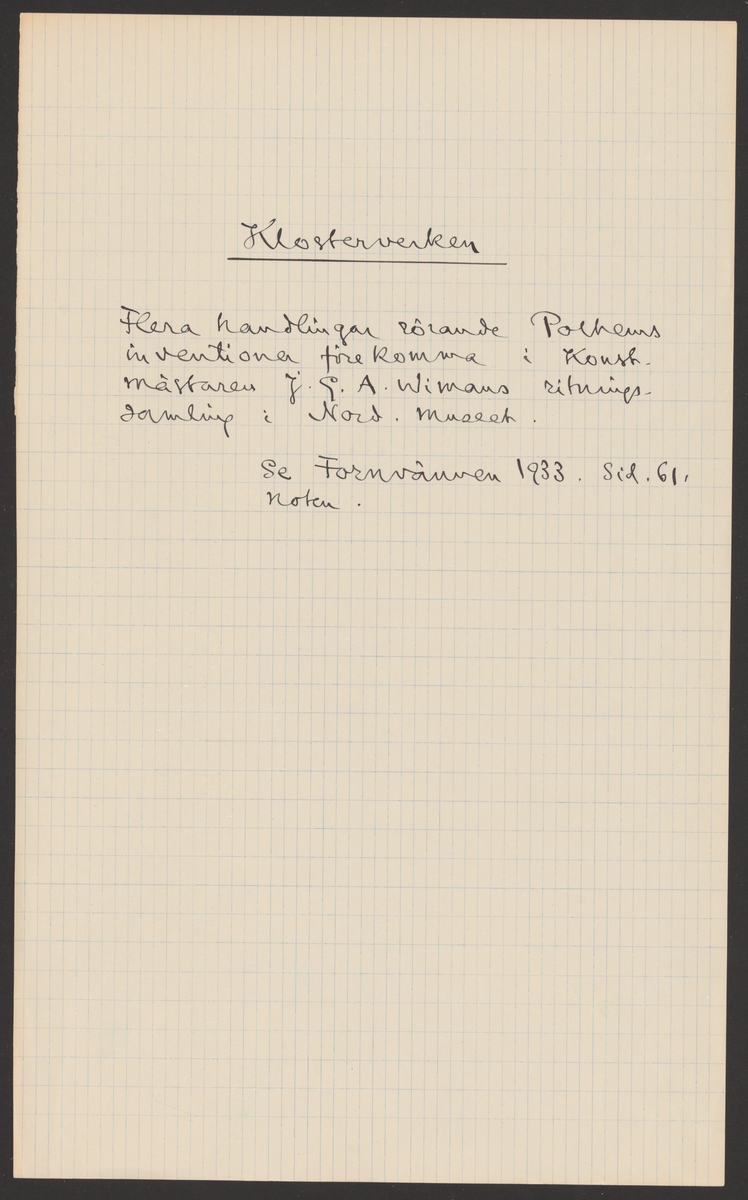 Klosterverken
Flera handlingar rörande Polhems
inventioner förekomma i Konst-
mästaren J. G. A. Wimans ritnings-
samling i Nord. Museet.
Se Fornvännen 1933. Sid. 61,
noten.